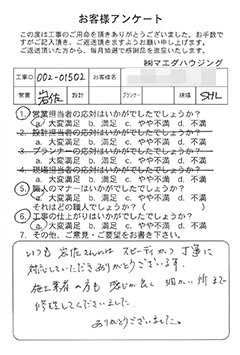 お客様アンケート
この度は工事のご用命を頂きありがとうございました。お手数で
すがご記入頂き、ご返送頂きますようお願い申し上げます。
ご返送頂いた方から、毎月抽選で感謝品を進呈いたします。
㈱マエダハウジング
工事ID 002-01502 お客様名
営業 岩佐 設計 プランナー 現場 SHL
1. 営業担当者の応対はいかがでしたでしょうか?
a. 大変満足 b. 満足 c. やや不満 d. 不満
2. 設計担当者の応対はいかがでしたでしょうか?
a. 大変満足 b. 満足 c. やや不満 d. 不満
3. プランナーの応対はいかがでしたでしょうか?
a. 大変満足 b. 満足 c. やや不満 d. 不満
4. 現場担当者の応対はいかがでしたでしょうか?
a. 大変満足 b. 満足 c. やや不満 d. 不満
5. 職人のマナーはいかがでしたでしょうか?
a. 大変満足 b. 満足 c. やや不満 d. 不満
それはどの職人でしょうか? ( )
6. 工事の仕上がりはいかがでしたでしょうか?
a. 大変満足 b. 満足 c. やや不満 d. 不満
7. その他、ご意見・ご要望をお書き下さい。
いつも岩佐さんには スピーディかつ丁寧に
対応していただきありがとうございます。
施工業者の方も 感じが良く 細かい所まで
修理してくださいました。
ありがとうございました。